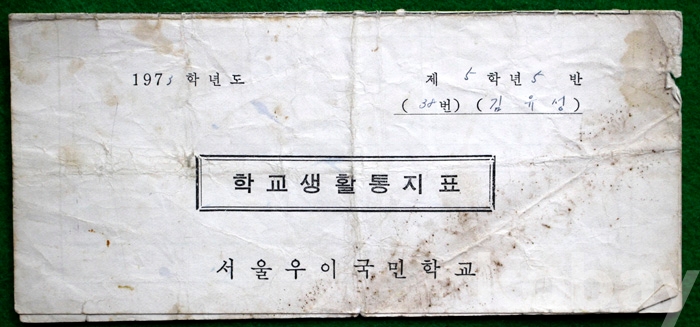 1973 학년도
제 5 학년 5 반
(38번) (김유성)
학교생활통지표
서울우이국민학교